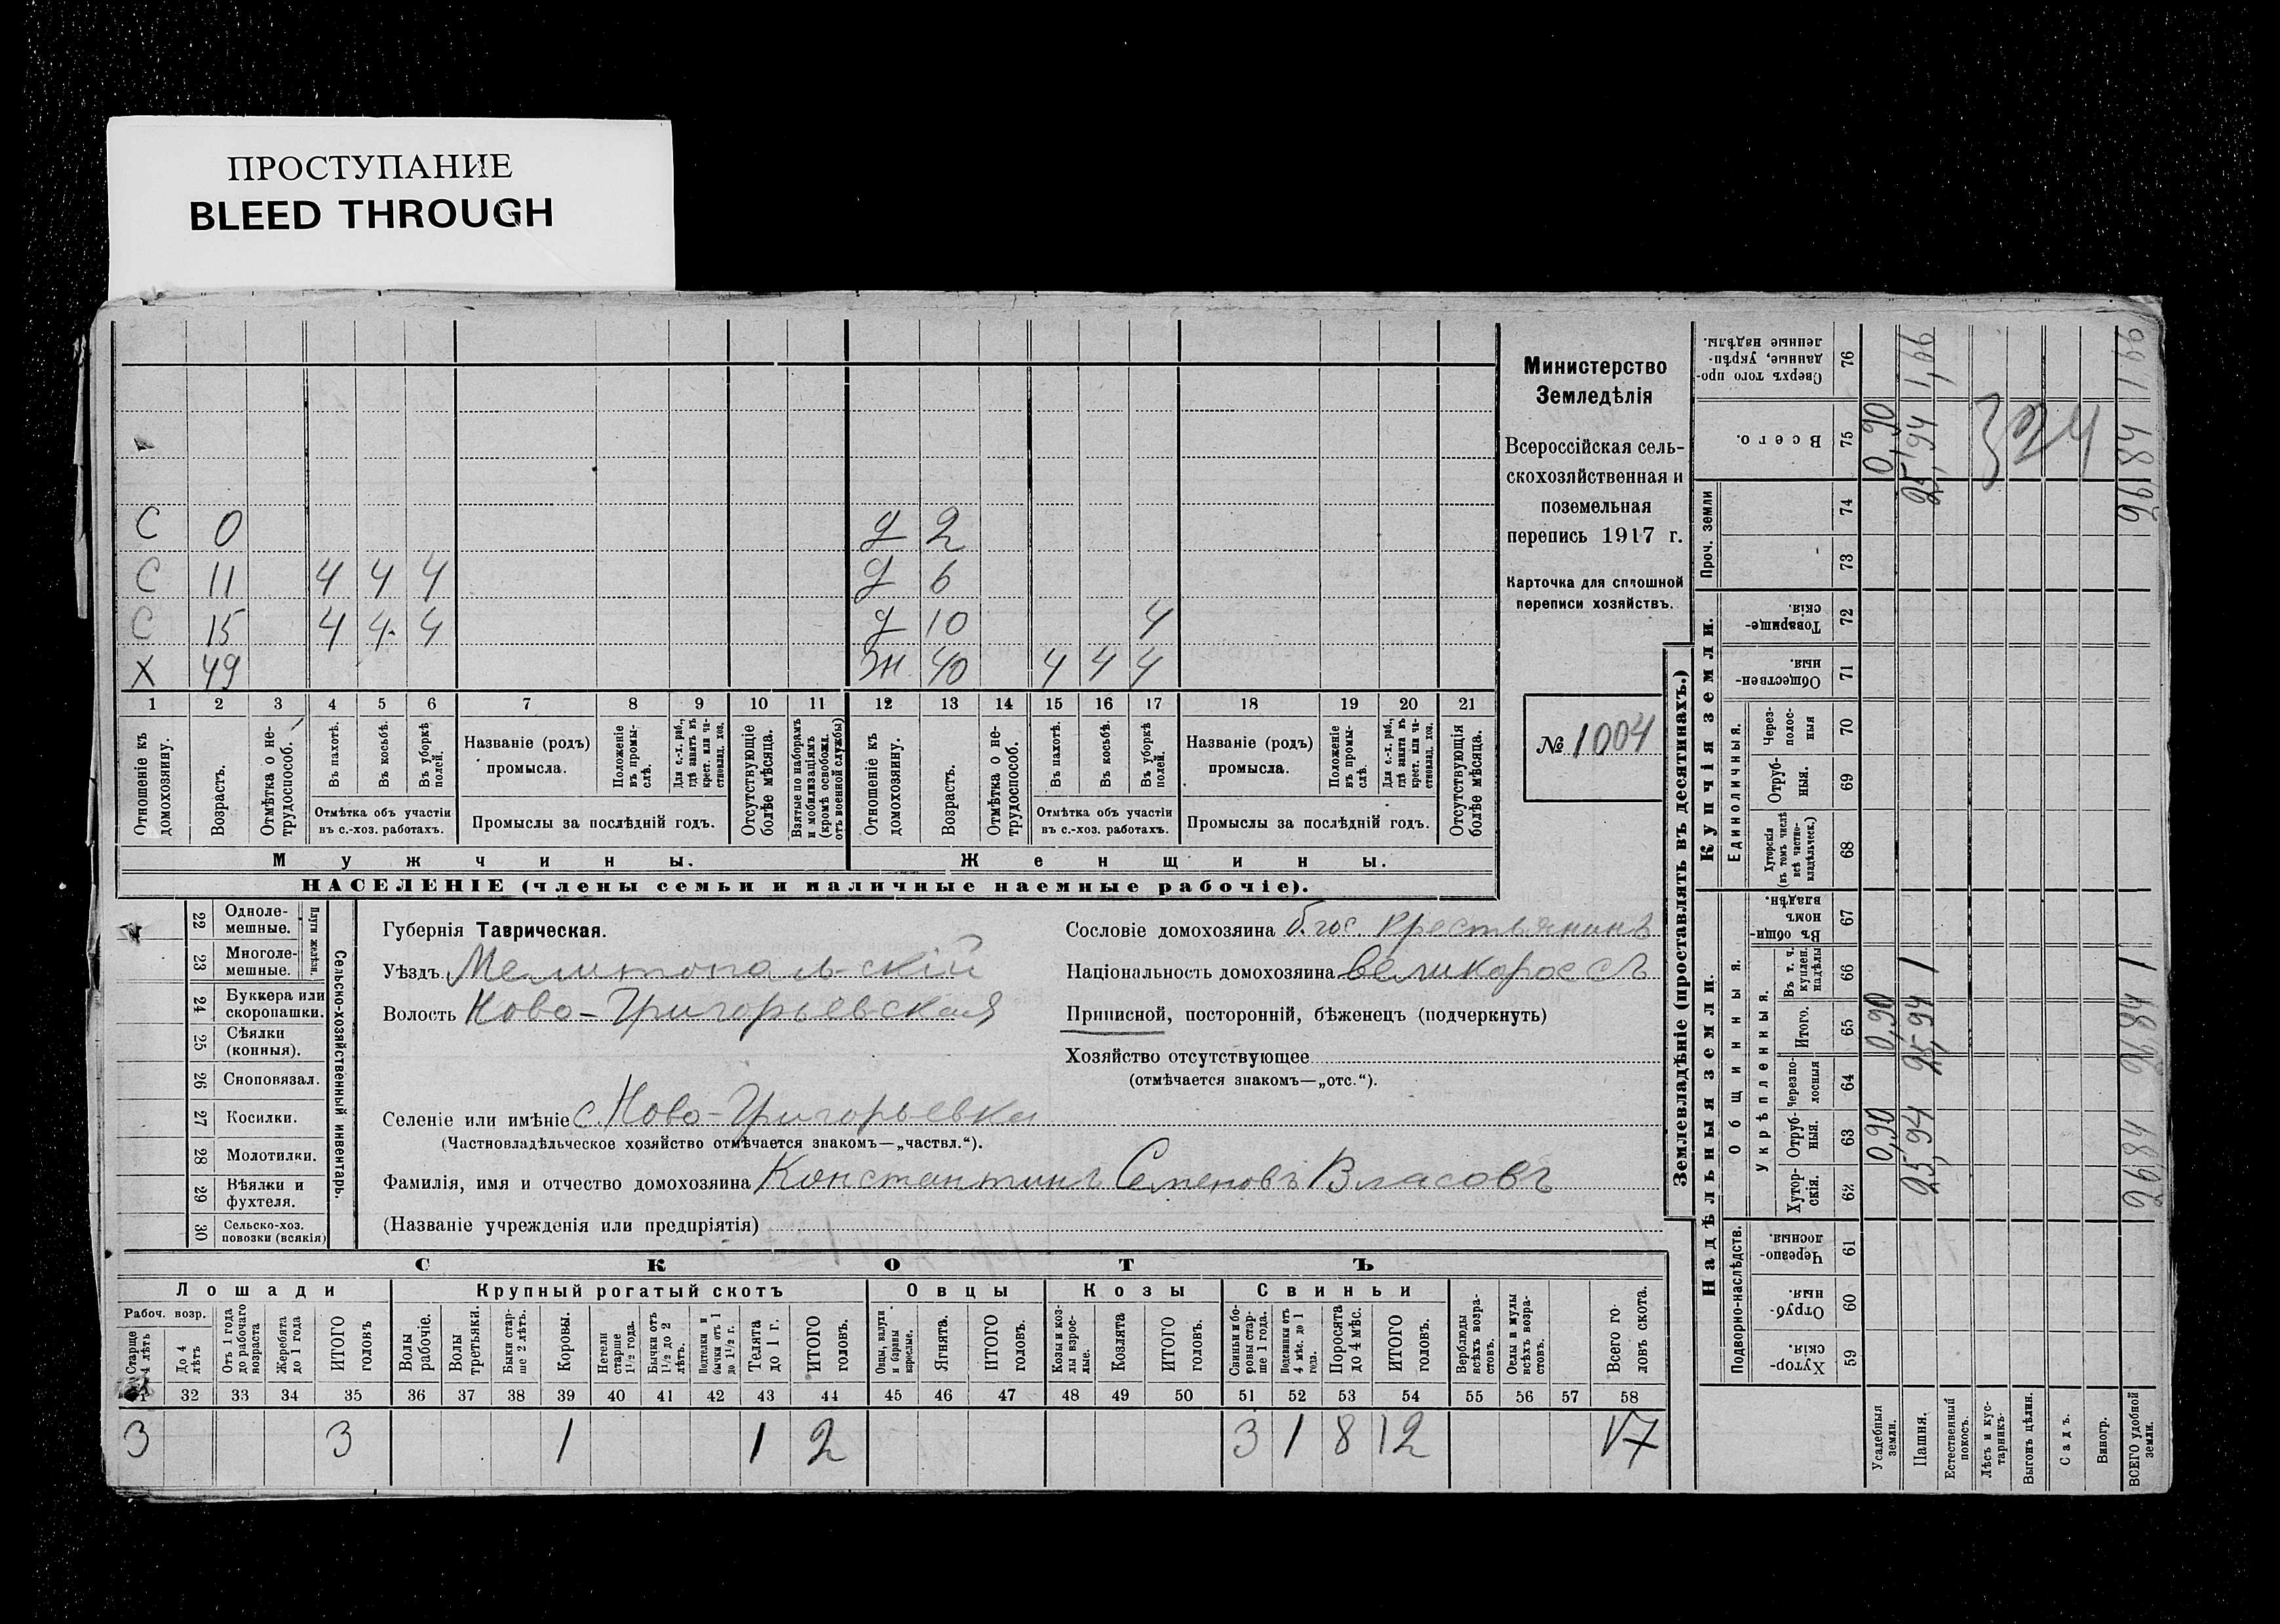 ПРОСТУПАНИЕ
BLEED THROUGH
С 0 д 2
С 11 4 4 4 д 6
С 15 4 4 4 д 10 4
Х 49 ж 40 4 4 4
1 2 3 4 5 6 7 8 9 10 11 12 13 14 15 16 17 18 19 20 21
Отношеніе къ домохозяину.
Возрастъ.
Отмѣтка о не-трудоспособ.
Въ пахотѣ.
Въ косьбѣ.
Въ уборкѣ полей.
Отмѣтка объ участіи
въ с.-хоз. работахъ.
Названіе (родъ)
промысла.
Положеніе въ промы-слѣ.
Для с.-х. раб., гдѣ занятъ въ крест. или ча-стновлад. хоз.
Промыслы за послѣдній годъ.
Отсутствующіе болѣе мѣсяца.
Взятые по наборамъ и мобилизаціямъ (кромѣ освобожд. отъ военной службы)
Отношеніе къ домохозяину.
Возрастъ.
Отмѣтка о не-трудоспособ.
Въ пахотѣ.
Въ косьбѣ.
Въ уборкѣ полей.
Отмѣтка объ участіи
въ с.-хоз. работахъ.
Названіе (родъ)
промысла.
Положеніе въ промы-слѣ.
Для с.-х. раб., гдѣ занята въ крест. или ча-стновлад. хоз.
Промыслы за послѣдній годъ.
Отсутствующія болѣе мѣсяца.
Мужчины. Женщины.
НАСЕЛЕНІЕ (члены семьи и наличные наемные рабочіе).
Министерство
Земледѣлія
Всероссійская сель-
скохозяйственная и
поземельная
перепись 1917 г.
Карточка для сплошной
переписи хозяйствъ.
№ 1004
22 Одноле-мешные.
23 Многоле-мешные.
Плуги желѣзн.
24 Буккера или скоропашки.
25 Сѣялки (конныя).
26 Сноповязал.
27 Косилки.
28 Молотилки.
29 Вѣялки и фухтеля.
30 Сельско-хоз. повозки (всякія)
Сельско-хозяйственный инвентарь.
Губернія Таврическая.
Уѣздъ Мелитопольскій
Волость Ново-Григорьевская
Сословіе домохозяина б. гос. крестьянинъ
Національность домохозяина великороссъ
Приписной, посторонній, бѣженец (подчеркнуть)
Хозяйство отсутствующее
(отмѣчается знакомъ—„отс.“).
Селеніе или имѣніе с. Ново-Григорьевка
(Частновладѣльческое хозяйство отмѣчается знакомъ—„частвл.“).
Фамилія, имя и отчество домохозяина Константинъ Семеновъ Власовъ
(Названіе учрежденія или предпріятія)
СКОТЪ
Лошади Крупный рогатый скотъ Овцы Козы Свиньи
Рабоч. возр.
Старше 4 лѣтъ
До 4 лѣтъ
Отъ 1 года до рабочаго возраста
Жеребята до 1 года
ИТОГО головъ
Волы рабочіе.
Волы третьяки.
Быки стар-ше 2 лѣтъ.
Коровы.
Нетели старше 1½ года.
Бычки отъ 1½ до 2 лѣтъ.
Подтелки и бычки отъ 1 до 1½ г.
Телята до 1 г.
ИТОГО головъ.
Овцы, валухи и бараны взрослые.
Ягнята.
ИТОГО головъ.
Козы и коз-лы взрос-лые.
Козлята
ИТОГО головъ.
Свиньи и бо-ровы стар-ше 1 года.
Подсвинки отъ 4 мѣс. до 1 года.
Поросята до 4 мѣс.
ИТОГО головъ.
Верблюды всѣхъ возра-стовъ.
Ослы и мулы всѣхъ возра-стовъ.
Всего го-ловъ скота.
32 33 34 35 36 37 38 39 40 41 42 43 44 45 46 47 48 49 50 51 52 53 54 55 56 57 58
3 3 1 1 2 3 1 8 12 17
Землевладѣніе (проставлять въ десятинахъ.)
Надѣльныя земли. Купчія земли. Проч. земли
Подворно-наслѣдств.
Общинныя.
Укрѣпленныя.
Единоличныя.
Хутор-скія. 59
Отруб-ныя. 60
Черезпо-лосныя. 61
Хутор-скія. 62
Отруб-ныя. 63
Черезпо-лосныя 64
Итого. 65
Въ т. ч. куплен. надѣлы 66
Въ общин-номъ владѣн. 67
Хуторскія (въ томъ числѣ всѣ частно-владѣльческ.) 68
Отруб-ныя. 69
Через-полос-ныя 70
Обществен-ныя. 71
Товарище-скія. 72
73
74
Всего. 75
Сверхъ того про-данные, укрѣп-ленные надѣлы. 76
Усадебныя земли. 0,90 0,90 0,90
Пашня. 25,94 25,94 1 25,94 1,66
Естественный покосъ.
Лѣсъ и кус-тарникъ.
Выгонъ цѣлин.
Садъ.
Виногр.
324
ВСЕГО удобной земли. 26,84 26,84 1 26,84 1,66